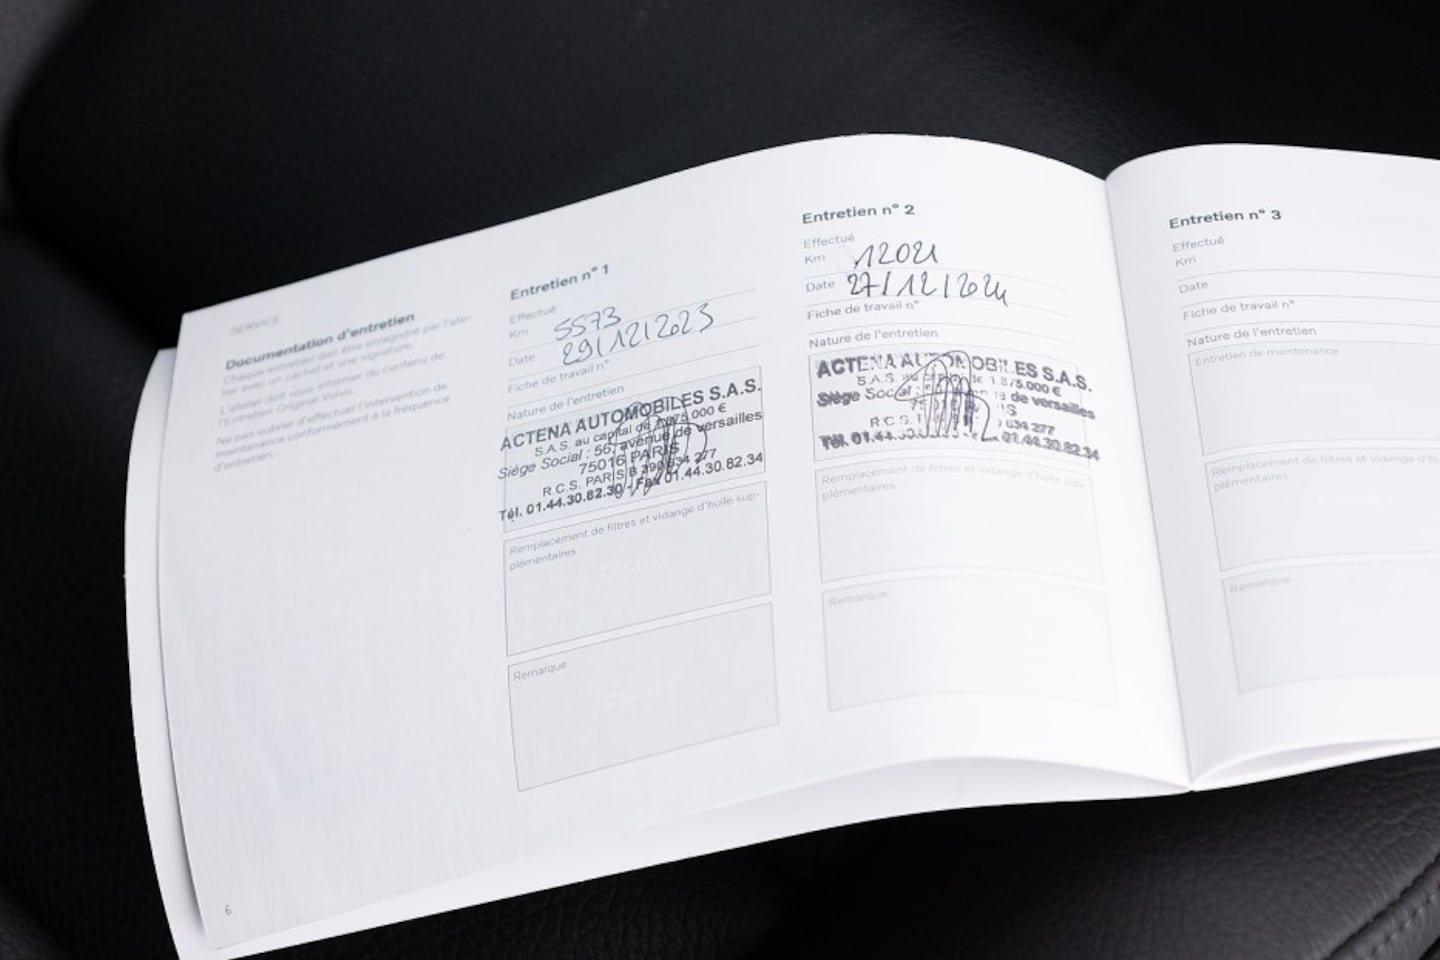 SERVICE
Documentation d'entretien
Chaque entretien doit être enregistré par l'ate-
lier avec un cachet et une signature.
L'atelier doit vous informer du contenu de
l'Entretien Original Volvo.
Ne pas oublier d'effectuer l'intervention de
maintenance conformément à la fréquence
d'entretien.
6
Entretien n° 1
Effectué
Km 5573
Date 29/12/2023
Fiche de travail n°
Nature de l'entretien
ACTENA AUTOMOBILES S.A.S.
S.A.S. au capital de 1.875.000 €
Siège Social : 56, avenue de versailles
75016 PARIS
R.C.S. PARIS B 298 634 277
Tél. 01.44.30.82.30 - Fax 01.44.30.82.34
Remplacement de filtres et vidange d'huile sup-
plémentaires
CACHET
Remarque
CACHET
Entretien n° 2
Effectué
Km 12021
Date 27/12/2024
Fiche de travail n°
Nature de l'entretien
ACTENA AUTOMOBILES S.A.S.
S.A.S. au 1.875.000 €
Siège Social : de versailles
R.C.S. 634 277
Tél. 01.44.30 01.44.30.82.34
Remplacement de filtres et vidange d'huile sup-
plémentaires
Remarque
Entretien n° 3
Effectué
Km
Date
Fiche de travail n°
Nature de l'entretien
Entretien de maintenance
Remplacement de filtres et vidange d'h
plémentaires
Remarque